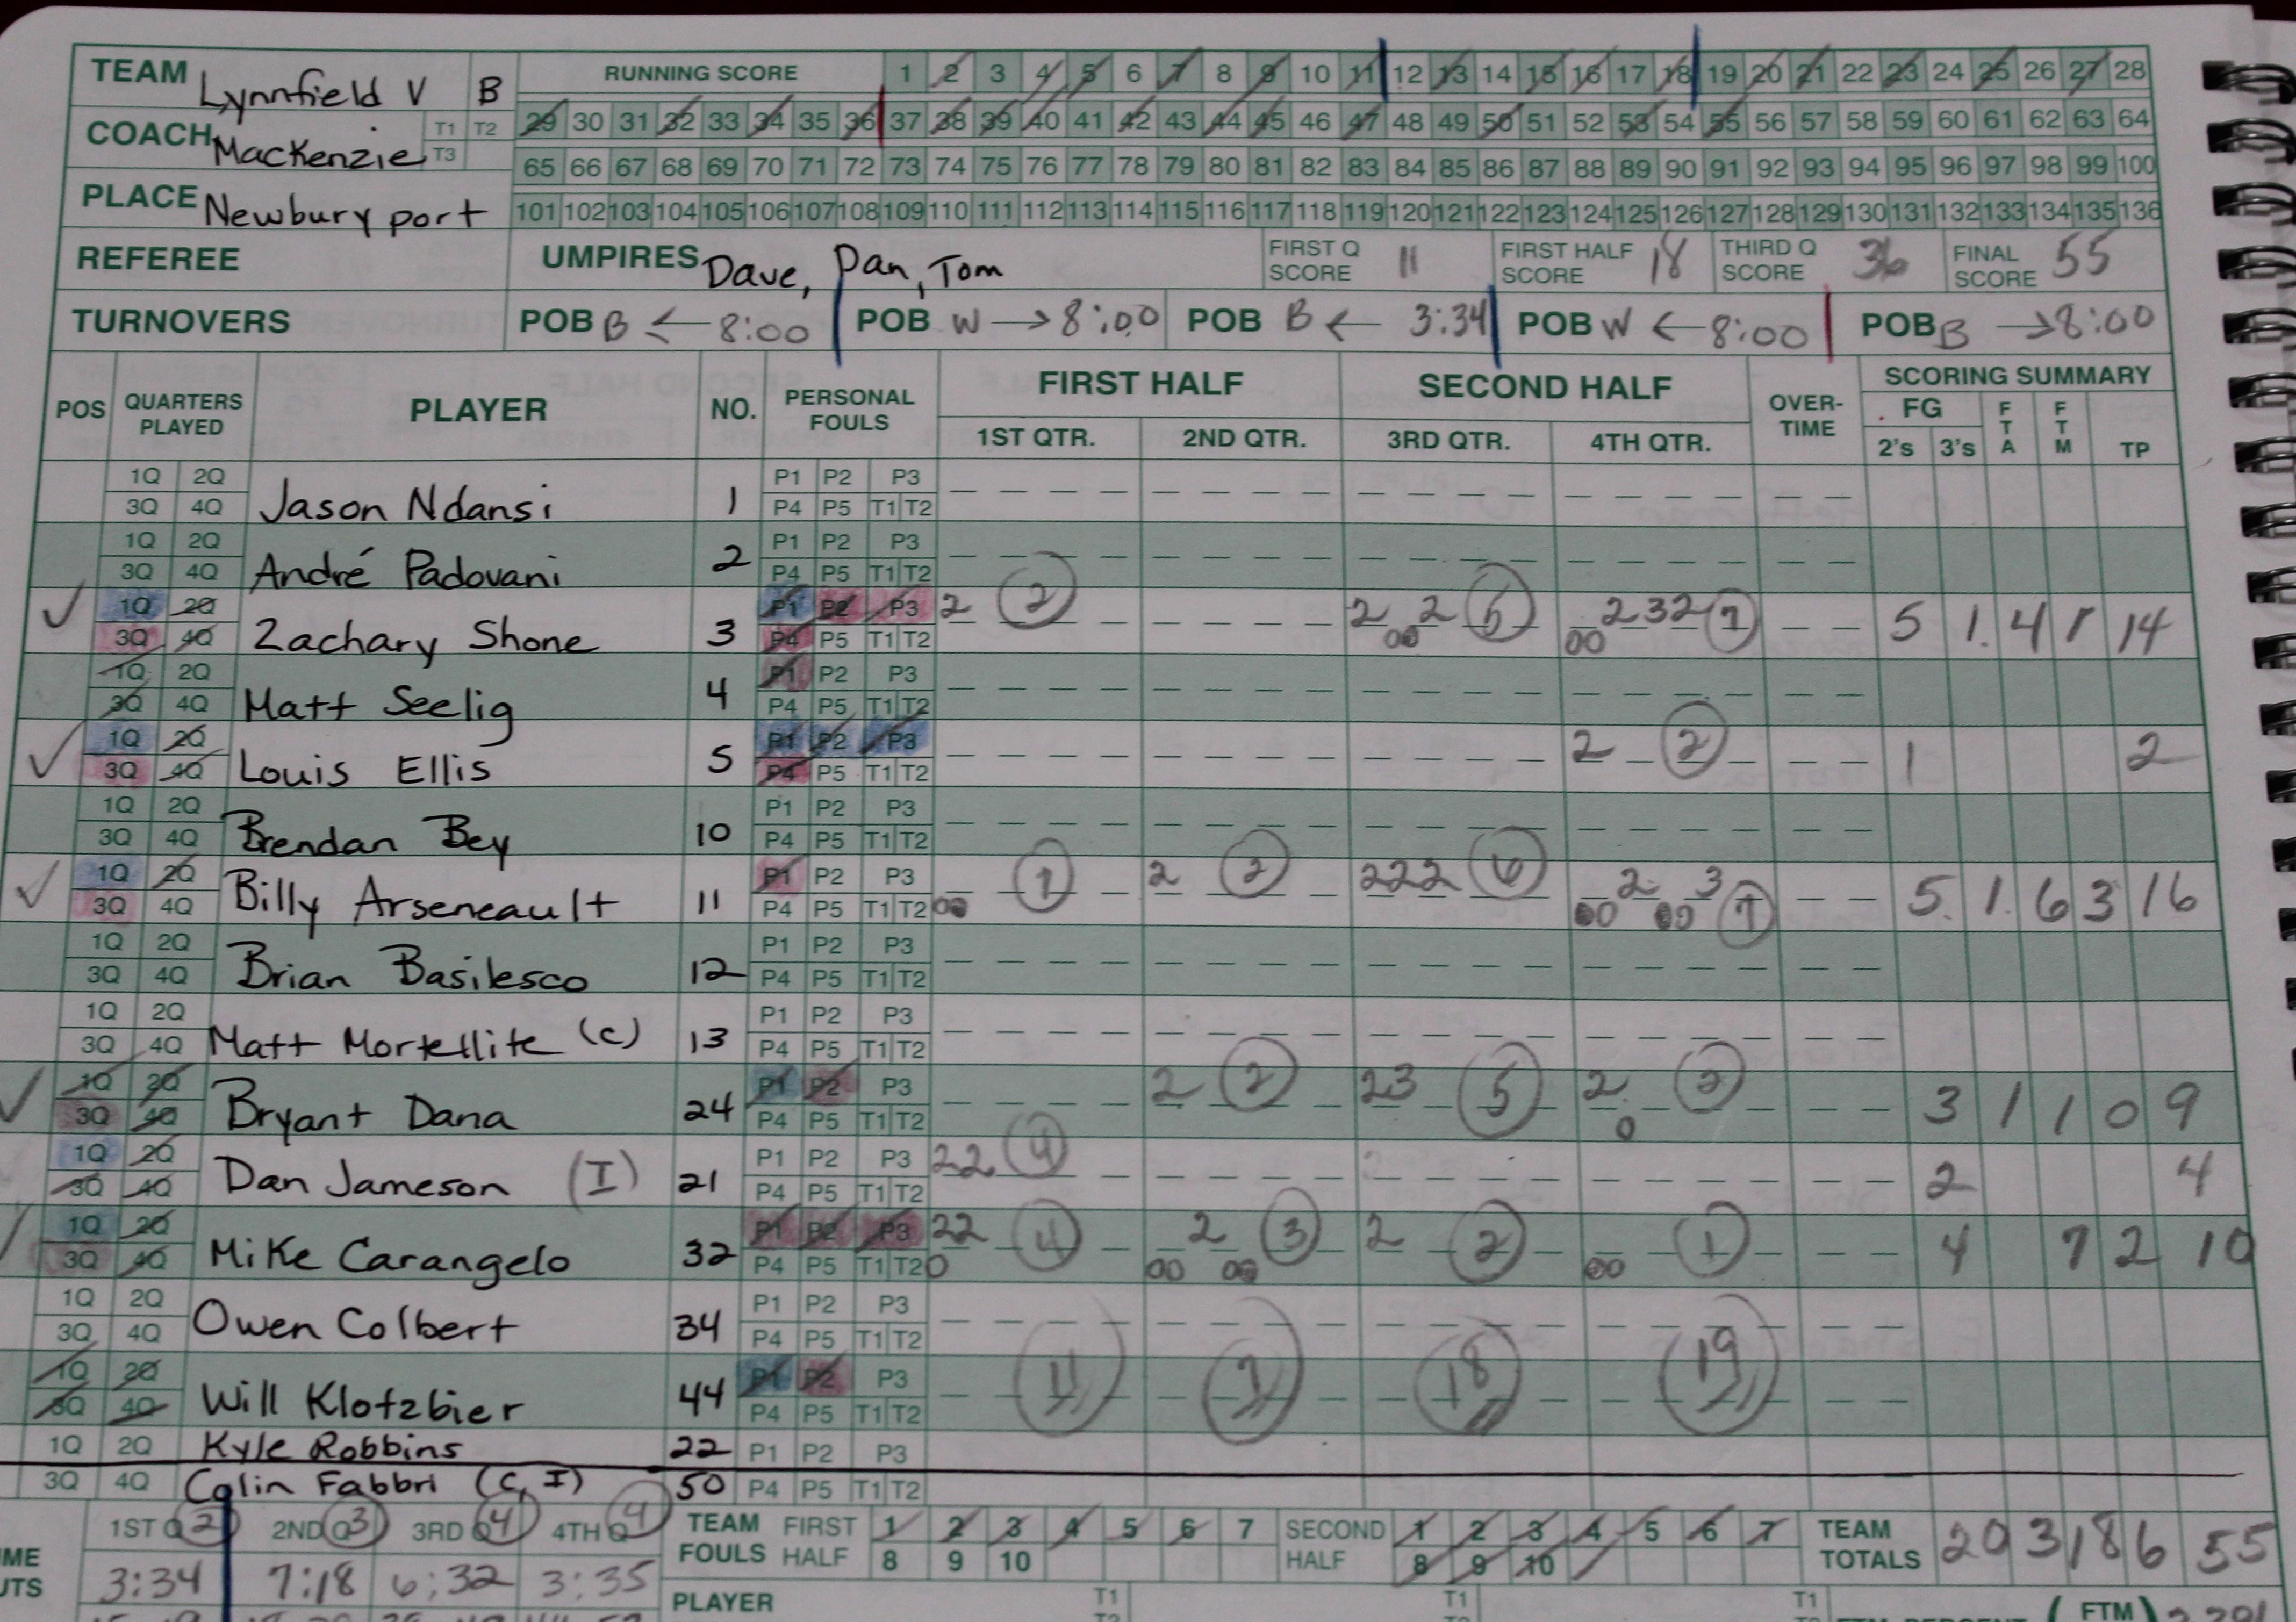 TEAM Lynnfield V B RUNNING SCORE 1 2 3 4 5 6 7 8 9 10 11 12 13 14 15 16 17 18 19 20 21 22 23 24 25 26 27 28
COACH Mackenzie T1 T2 T3 29 30 31 32 33 34 35 36 37 38 39 40 41 42 43 44 45 46 47 48 49 50 51 52 53 54 55 56 57 58 59 60 61 62 63 64
65 66 67 68 69 70 71 72 73 74 75 76 77 78 79 80 81 82 83 84 85 86 87 88 89 90 91 92 93 94 95 96 97 98 99 100
PLACE Newburyport 101 102 103 104 105 106 107 108 109 110 111 112 113 114 115 116 117 118 119 120 121 122 123 124 125 126 127 128 129 130 131 132 133 134 135 136
REFEREE UMPIRES Dave, Dan, Tom FIRST Q SCORE 11 FIRST HALF SCORE 18 THIRD Q SCORE 36 FINAL SCORE 55
TURNOVERS POB B ← 8:00 POB W → 8:00 POB B ← 3:34 POB W ← 8:00 POB B → 8:00
POS QUARTERS PLAYED PLAYER NO. PERSONAL FOULS FIRST HALF SECOND HALF OVER-TIME SCORING SUMMARY
1ST QTR. 2ND QTR. 3RD QTR. 4TH QTR. FG 2's 3's FTA FTM TP
1Q 2Q P1 P2 P3
3Q 4Q Jason Ndansi 1 P4 P5 T1 T2
1Q 2Q P1 P2 P3
3Q 4Q André Padovani 2 P4 P5 T1 T2
1Q 2Q P1 P2 P3 2 2 2 2 6 2 3 2 7
3Q 4Q Zachary Shone 3 P4 P5 T1 T2 5 1 4 1 14
1Q 2Q P1 P2 P3
3Q 4Q Matt Seelig 4 P4 P5 T1 T2
1Q 2Q P1 P2 P3 2 2
3Q 4Q Louis Ellis 5 P4 P5 T1 T2 1 2
1Q 2Q P1 P2 P3
3Q 4Q Brendan Bey 10 P4 P5 T1 T2
1Q 2Q P1 P2 P3 1 2 2 2 2 2 6 2 3 7
3Q 4Q Billy Arseneault 11 P4 P5 T1 T2 5 1 6 3 16
1Q 2Q P1 P2 P3
3Q 4Q Brian Basilesco 12 P4 P5 T1 T2
1Q 2Q P1 P2 P3
3Q 4Q Matt Mortellite (C) 13 P4 P5 T1 T2
1Q 2Q P1 P2 P3 2 2 2 3 5 2 2
3Q 4Q Bryant Dana 24 P4 P5 T1 T2 3 1 1 0 9
1Q 2Q P1 P2 P3 2 2 4
3Q 4Q Dan Jameson (I) 21 P4 P5 T1 T2 2 4
1Q 2Q P1 P2 P3 2 2 4 2 3 2 2 1
3Q 4Q Mike Carangelo 32 P4 P5 T1 T2 4 7 2 10
1Q 2Q P1 P2 P3
3Q 4Q Owen Colbert 34 P4 P5 T1 T2
1Q 2Q P1 P2 P3 11 7 18 19
3Q 4Q Will Klotzbier 44 P4 P5 T1 T2
1Q 2Q Kyle Robbins 22 P1 P2 P3
3Q 4Q Colin Fabbri (C, I) 50 P4 P5 T1 T2
1ST Q 2 2ND Q 3 3RD Q 4 4TH Q 4 TEAM FOULS FIRST HALF 1 2 3 4 5 6 7 8 9 10 SECOND HALF 1 2 3 4 5 6 7 8 9 10 TEAM TOTALS 20 3 18 6 55
3:34 7:18 6:32 3:35
PLAYER T1 T1 T1 (FTM)